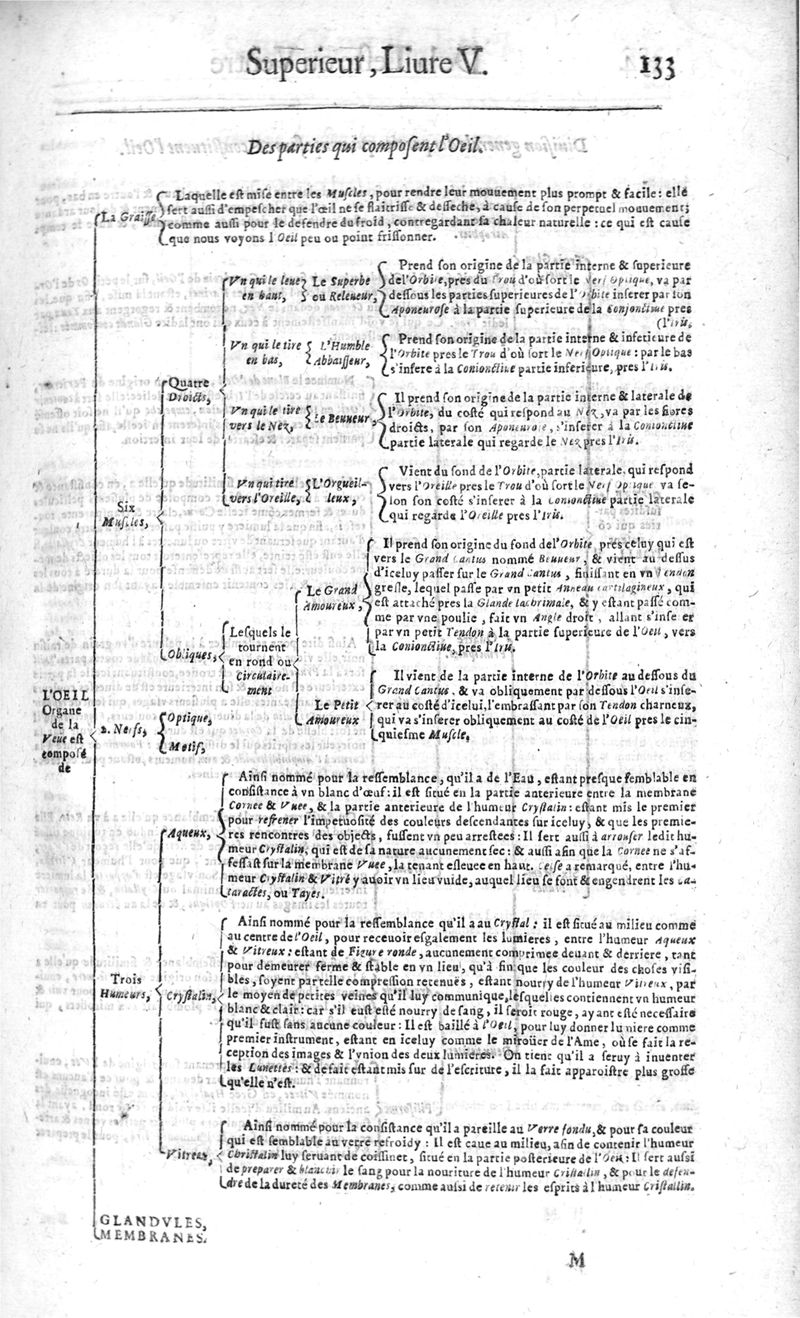 Superieur, Liure V. 133
Des parties qui composent l'Oeil.
La Graisse
Laquelle est mise entre les Muscles, pour rendre leur mouuement plus prompt & facile: elle
sert aussi d'empescher que l'œil ne se flaitrisse & desseche, à cause de son perpetuel mouuement;
comme aussi pour le defendre du froid, contregardant sa chaleur naturelle : ce qui est cause
que nous voyons l'Oeil peu ou point frissonner.
L'OEIL
Organe
de la
Veuë est
composé
de
Six
Muscles,
Quatre
Droicts,
Vn qui le leue
en haut,
Le Superbe
ou Releueur,
Prend son origine de la partie interne & superieure
de l'Orbite, pres du Trou d'où sort le Nerf Optique, va par
dessous les parties superieures de l'Orbite inserer par son
Aponeurose à la partie superieure de la Conjonctiue pres
(l'Iris.
Vn qui le tire
en bas,
L'Humble
Abbaisseur,
Prend son origine de la partie interne & inferieure de
l'Orbite pres le Trou d'où sort le Nerf Optique : par le bas
s'insere à la Conionctiue partie inferieure, pres l'Iris.
Vn qui le tire
vers le Nez,
Le Beuueur,
Il prend son origine de la partie interne & laterale de
l'Orbite, du costé qui respond au Nez, va par les fibres
droicts, par son Aponeurose, s'inserer à la Conionctiue
partie laterale qui regarde le Nez pres l'Iris.
Vn qui tire
vers l'Oreille,
L'Orgueil-
leux,
Vient du fond de l'Orbite, partie laterale, qui respond
vers l'Oreille pres le Trou d'où sort le Nerf Optique va se-
lon son costé s'inserer à la Conionctiue partie laterale
qui regarde l'Oreille pres l'Iris.
Obliques,
Lesquels le
tournent
en rond ou
Circulaire-
ment
Le Grand
Amoureux,
Il prend son origine du fond de l'Orbite, prés celuy qui est
vers le Grand Cantus nommé Beuueur, & vient au dessus
d'iceluy passer sur le Grand Cantus, finissant en vn Tendon
gresle, lequel passe par vn petit Anneau cartilagineux, qui
est attaché pres la Glande lachrimale, & y estant passé com-
me par vne poulie, fait vn Angle droit, allant s'inserer
par vn petit Tendon à la partie superieure de l'Oeil, vers
la Conionctiue, pres l'Iris.
Le Petit
Amoureux
Il vient de la partie interne de l'Orbite au dessous du
Grand Cantus, & va obliquement par dessous l'Oeil s'inse-
rer au costé d'icelui, l'embrassant par son Tendon charneux,
qui va s'inserer obliquement au costé de l'Oeil pres le cin-
quiesme Muscle.
2. Nerfs,
Optique,
Motif,
Trois
Humeurs,
Aqueux,
Ainsi nommé pour la ressemblance, qu'il a de l'Eau, estant presque semblable en
consistance à vn blanc d'œuf: il est situé en la partie anterieure entre la membrane
Cornee & Vuee, & la partie anterieure de l'humeur Crystalin : estant mis le premier
pour refrener l'impetuosité des couleurs descendantes sur iceluy, & que les premie-
res rencontres des objects, fussent vn peu arrestees : Il sert aussi à arrouser ledit hu-
meur Crystalin, qui est de sa nature aucunement sec: & aussi afin que la Cornee ne s'af-
fessast sur la membrane Vuee, la tenant esleuee en haut. Celse a remarqué, entre l'hu-
meur Crystalin & Vitré y auoir vn lieu vuide, auquel lieu se font & engendrent les Ca-
taractes, ou Tayes.
Crystalin,
Ainsi nommé pour la ressemblance qu'il a au Crystal : il est situé au milieu comme
au centre de l'Oeil, pour receuoir esgalement les lumieres, entre l'humeur Aqueux
& Vitreux: estant de Figure ronde, aucunement comprimee deuant & derriere, tant
pour demeurer ferme & stable en vn lieu, qu'à fin que les couleur des choses visi-
bles, soyent par telle compression retenuës, estant nourry de l'humeur Vitreux, par
le moyen de petites veines qu'il luy communique, lesquelles contiennent vn humeur
blanc & clair: car s'il eust esté nourry de sang, il seroit rouge, ayant esté necessaire
qu'il fust sans aucune couleur : Il est baillé à l'Oeil, pour luy donner lumiere comme
premier instrument, estant en iceluy comme le miroüer de l'Ame, où se fait la re-
ception des images & l'vnion des deux lumieres. On tient qu'il a seruy à inuenter
les Lunettes: & de fait estant mis sur de l'escriture, il la fait apparoistre plus grosse
qu'elle n'est.
Vitreux,
Ainsi nommé pour la consistance qu'il a pareille au Verre fondu, & pour sa couleur
qui est semblable au verre refroidy : Il est caue au milieu, afin de contenir l'humeur
Christalin luy seruant de coissinet, situé en la partie posterieure de l'Oeil: Il sert aussi
de preparer & blanchir le sang pour la nouriture de l'humeur Cristalin, & pour le defen-
dre de la dureté des Membranes, comme aussi de retenir les esprits à l'humeur Cristallin.
GLANDVLES,
MEMBRANES.
M